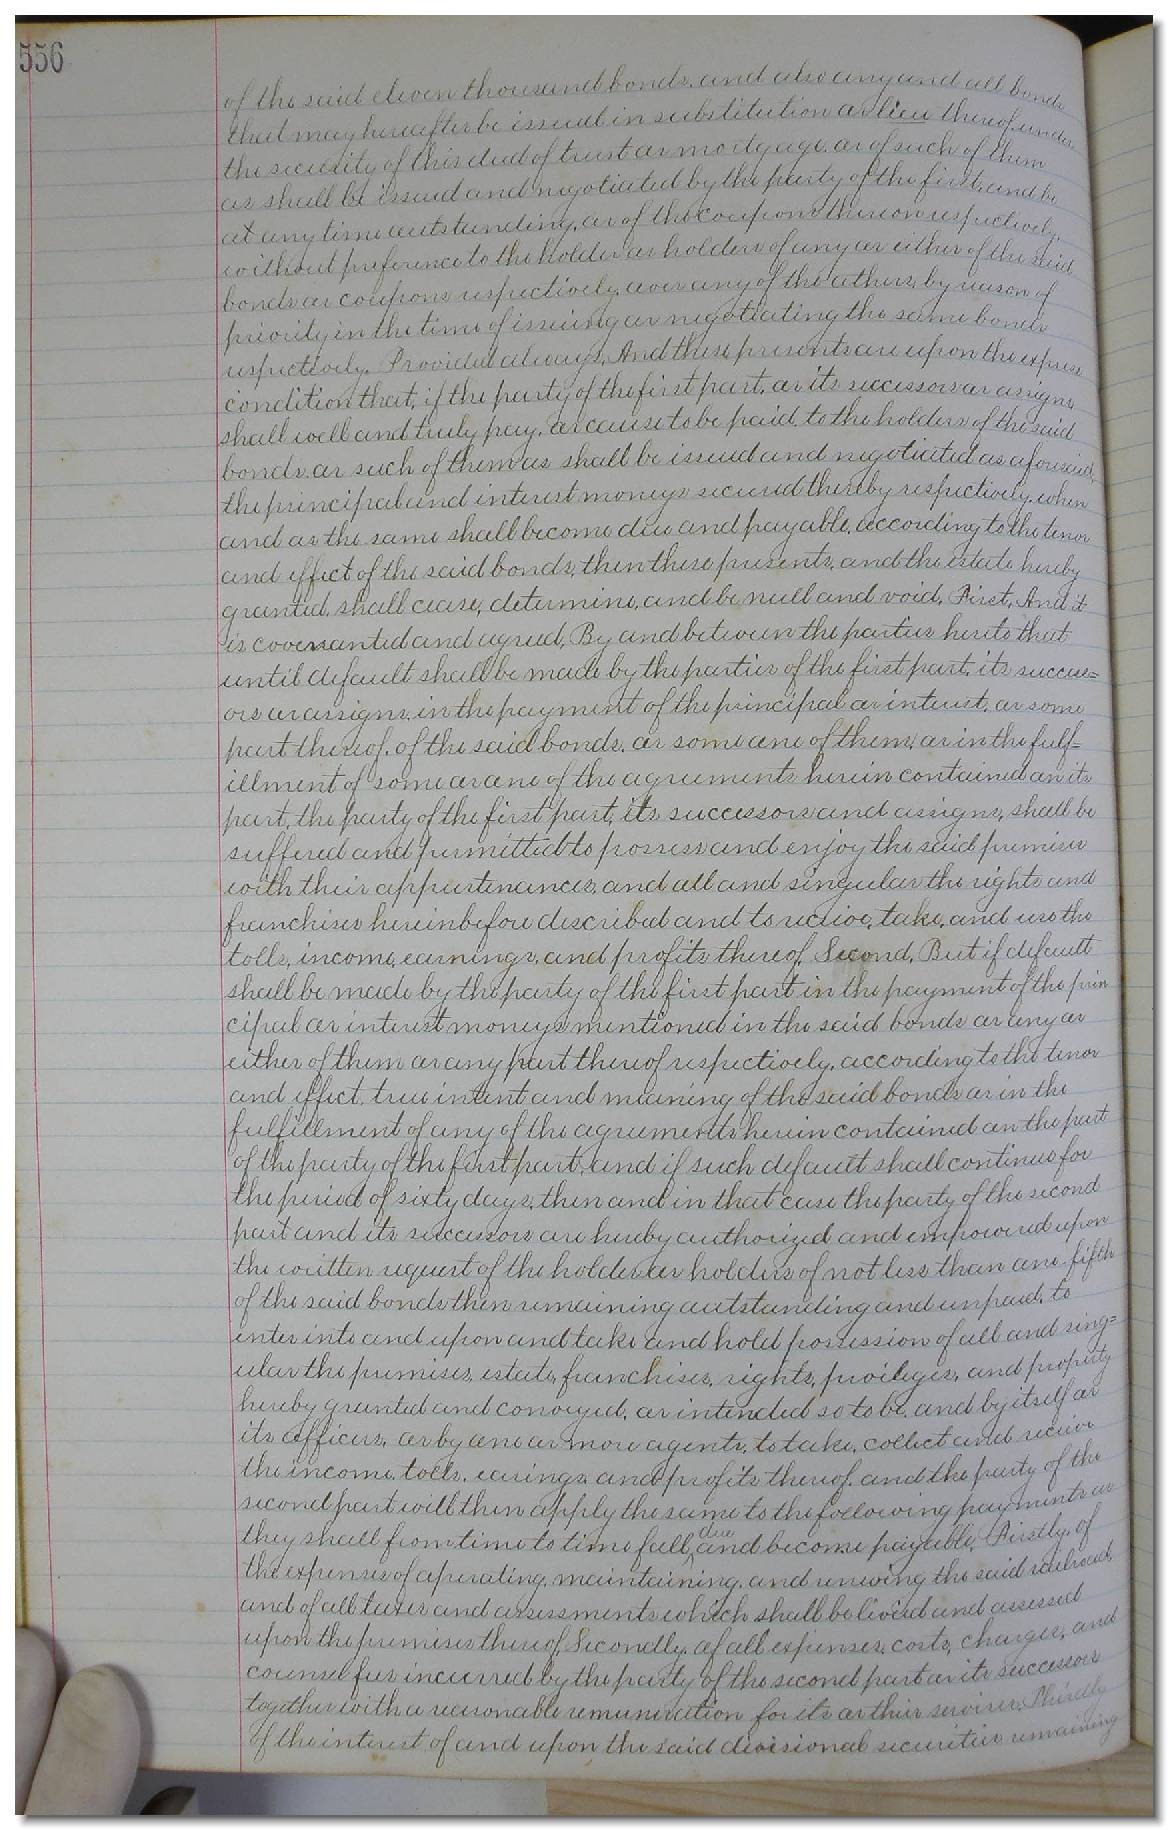 556
of the said eleven thousand bonds, and also any and all bonds
that may hereafter be issued in substitution or lieu thereof under
the security of this deed of trust or mortgage, or of such of them
as shall be issued and negotiated by the party of the first, and be
at any time outstanding, or of the coupons thereon respectively,
without preference to the holder or holders of any or either of the said
bonds or coupons respectively, over any of the others, by reason of
priority in the time of issuing or negotiating the same bonds
respectively. Provided always, And these presents are upon the express
condition that, if the party of the first part, or its successors or assigns,
shall well and truly pay, or cause to be paid, to the holders of the said
bonds, or such of them as shall be issued and negotiated as aforesaid,
the principal and interest moneys secured thereby respectively, when
and as the same shall become due and payable, according to the tenor
and effect of the said bonds, then these presents, and the estate hereby
granted, shall cease, determine, and be null and void. First, And it
is covenanted and agreed, By and between the parties hereto that
until default shall be made by the parties of the first part, its success=
ors or assigns, in the payment of the principal or interest, or some
part thereof, of the said bonds, or some one of them, or in the fulf=
illment of some or one of the agreements herein contained on its
part, the party of the first part, its successors and assigns, shall be
suffered and permitted to possess and enjoy the said premises
with their appurtenances, and all and singular the rights and
franchises hereinbefore described and to receive, take, and use the
tolls, income, earnings, and profits thereof. Second, But if default
shall be made by the party of the first part in the payment of the prin
cipal or interest moneys mentioned in the said bonds or any or
either of them or any part thereof respectively, according to the tenor
and effect, true intent and meaning of the said bonds or in the
fulfillment of any of the agreements herein contained on the part
of the party of the first part, and if such default shall continue for
the period of sixty days, then and in that case the party of the second
part and its successors are hereby authorized and empowered upon
the written request of the holder or holders of not less than one fifth
of the said bonds then remaining outstanding and unpaid, to
enter into and upon and take and hold possession of all and sing=
ular the premises, estate, franchises, rights, privileges, and property
hereby granted and conveyed, or intended so to be, and by itself or
its officers, or by one or more agents, to take, collect and receive
the income, tolls, earings, and profits thereof, and the party of the
second part will then apply the same to the following payments as
they shall from time to time fall due and become payable, Firstly, of
the expenses of operating, maintaining, and renewing the said railroad,
and of all taxes and assessments which shall be levied and assessed
upon the premises thereof, Secondly, of all expenses, costs, charges, and
counsel fees incurred by the party of the second part or its successors
together with a reasonable remuneration for its or their services. Thirdly
Of the interest of and upon the said divisional securities remaining